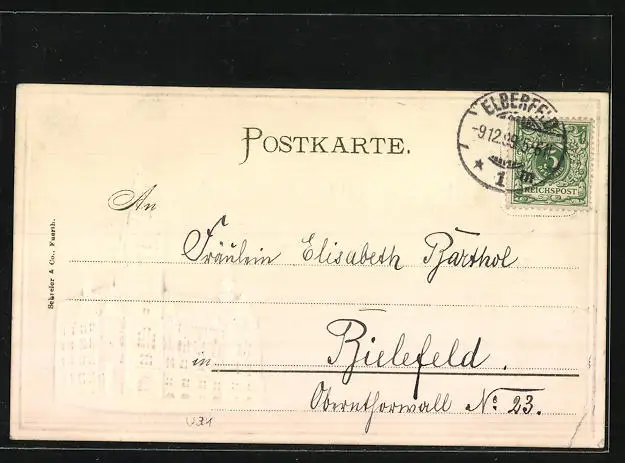 POSTKARTE.
ELBERFELD
-9.12.99.5-6N.
* 1 m
5
REICHSPOST
An
Fräulein Elisabeth Barthol
in Bielefeld.
Obernthorwall No. 23.
Schreier & Co., Fuerth.